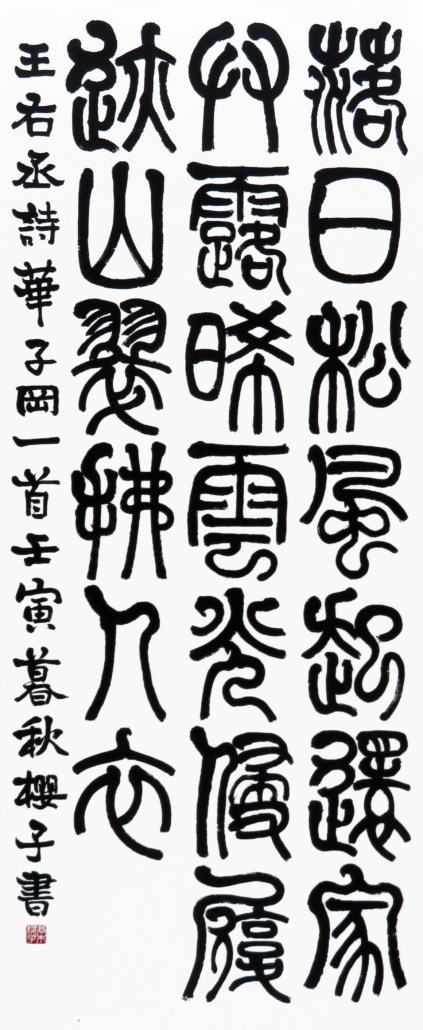 落日松風起還家
艸露晞雲光侵履
迹山翠拂人衣
王右丞詩華子岡一首壬寅暮秋櫻子書